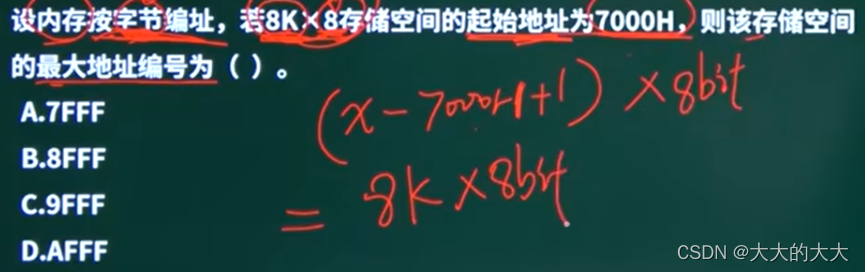 设内存按字节编址，若8K×8存储空间的起始地址为7000H，则该存储空间
的最大地址编号为（ ）。
A.7FFF
B.8FFF
C.9FFF
D.AFFF
(x-7000H+1)×8bit
=8K×8bit
CSDN @大大的大大